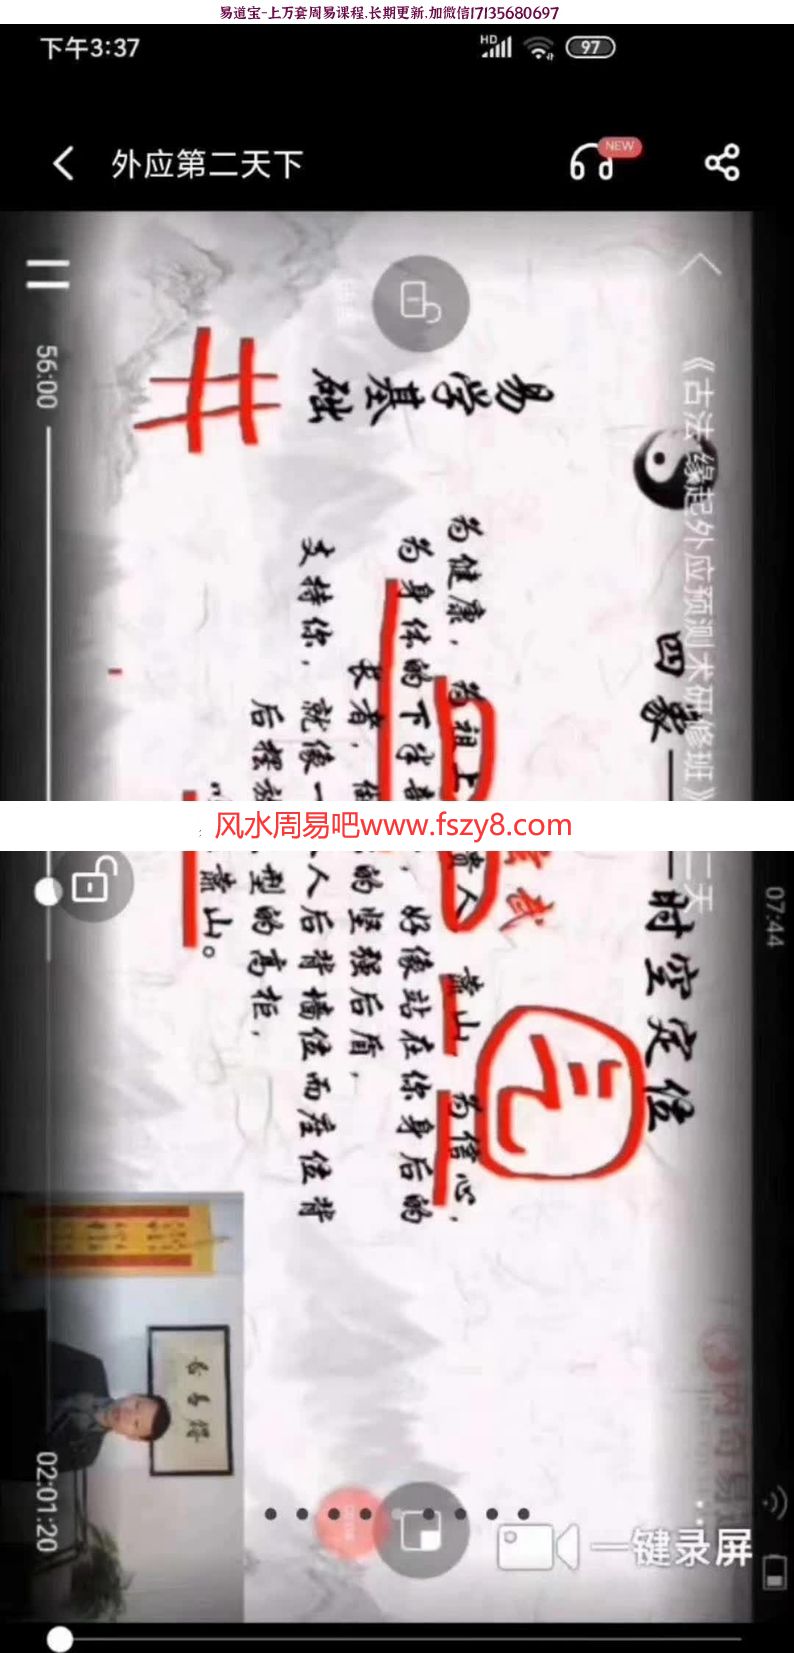 易道宝-上万套周易课程,长期更新,加微信17135680697
下午3:37
HD
97
外应第二天下
NEW
《古法 缘起外应预测术研修班》
二天
07:44
易学基础
四象
时空定位
为健康，为祖上
贵人
靠山
为信心，
为身体的下半
好像站在你身后的
长者，
的坚强后盾，
支持你，就像一
人后背墙位而座位背
后摆
型的高柜，
靠山。
元
井
56:00
02:01:20
风水周易吧www.fszy8.com
一键录屏